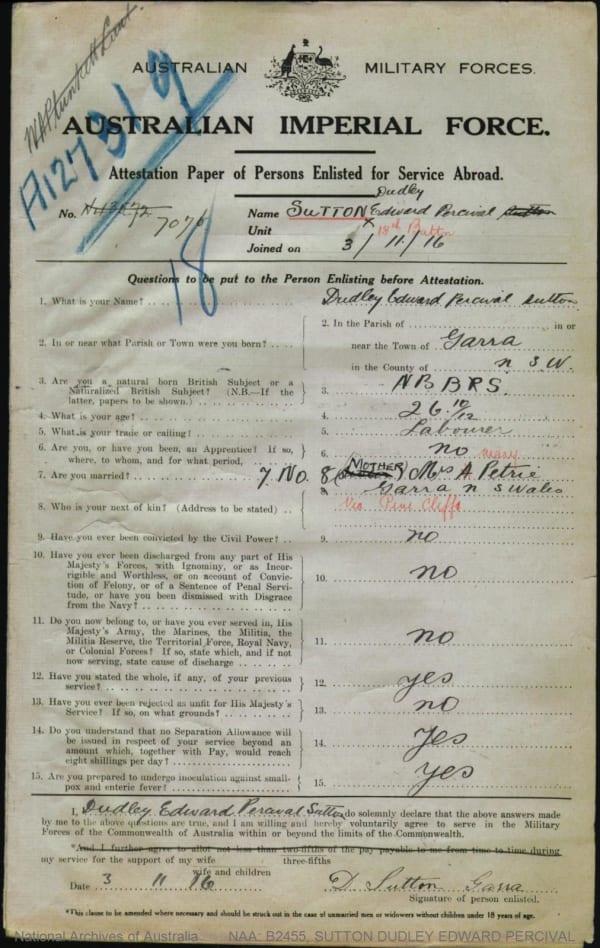 AUSTRALIAN MILITARY FORCES.
AUSTRALIAN IMPERIAL FORCE.
Attestation Paper of Persons Enlisted for Service Abroad.
Dudley
No. 7076 Name SUTTON Edward Percival Sutton
Unit 18th Battn
Joined on 3/11/16
18
Questions to be put to the Person Enlisting before Attestation.
1. What is your Name? Dudley Edward Percival Sutton
2. In or near what Parish or Town were you born? 2. In the Parish of in or
near the Town of Garra
in the County of N S W.
3. Are you a natural born British Subject or a
Naturalized British Subject? (N.B.—If the
latter, papers to be shown.) 3. N B B R S.
4. What is your age? 4. 26 10/12
5. What is your trade or calling? 5. Labourer
6. Are you, or have you been, an Apprentice? If so,
where, to whom, and for what period, 6. no
7. Are you married? 7 No. 8 (MOTHER) Mrs A Petrie
8. Who is your next of kin? (Address to be stated) 8. Garra N S Wales
Via Pine Cliffe
9. Have you ever been convicted by the Civil Power? 9. no
10. Have you ever been discharged from any part of His
Majesty's Forces, with Ignominy, or as Incor-
rigible and Worthless, or on account of Convic-
tion of Felony, or of a Sentence of Penal Servi-
tude, or have you been dismissed with Disgrace
from the Navy? 10. no
11. Do you now belong to, or have you ever served in, His
Majesty's Army, the Marines, the Militia, the
Militia Reserve, the Territorial Force, Royal Navy,
or Colonial Forces? If so, state which, and if not
now serving, state cause of discharge 11. no
12. Have you stated the whole, if any, of your previous
service? 12. yes
13. Have you ever been rejected as unfit for His Majesty's
Service? If so, on what grounds? 13. no
14. Do you understand that no Separation Allowance will
be issued in respect of your service beyond an
amount which, together with Pay, would reach
eight shillings per day? 14. Yes
15. Are you prepared to undergo inoculation against small-
pox and enteric fever? 15. Yes
I, Dudley Edward Percival Sutton do solemnly declare that the above answers made
by me to the above questions are true, and I am willing and hereby voluntarily agree to serve in the Military
Forces of the Commonwealth of Australia within or beyond the limits of the Commonwealth.
*And I further agree to allot not less than two-fifths of the pay payable to me from time to time during
my service for the support of my wife three-fifths
wife and children
Date 3 11 16 D. Sutton Garra
Signature of person enlisted.
*This clause to be amended where necessary and should be struck out in the case of unmarried men or widowers without children under 18 years of age.
National Archives of Australia NAA: B2455, SUTTON DUDLEY EDWARD PERCIVAL